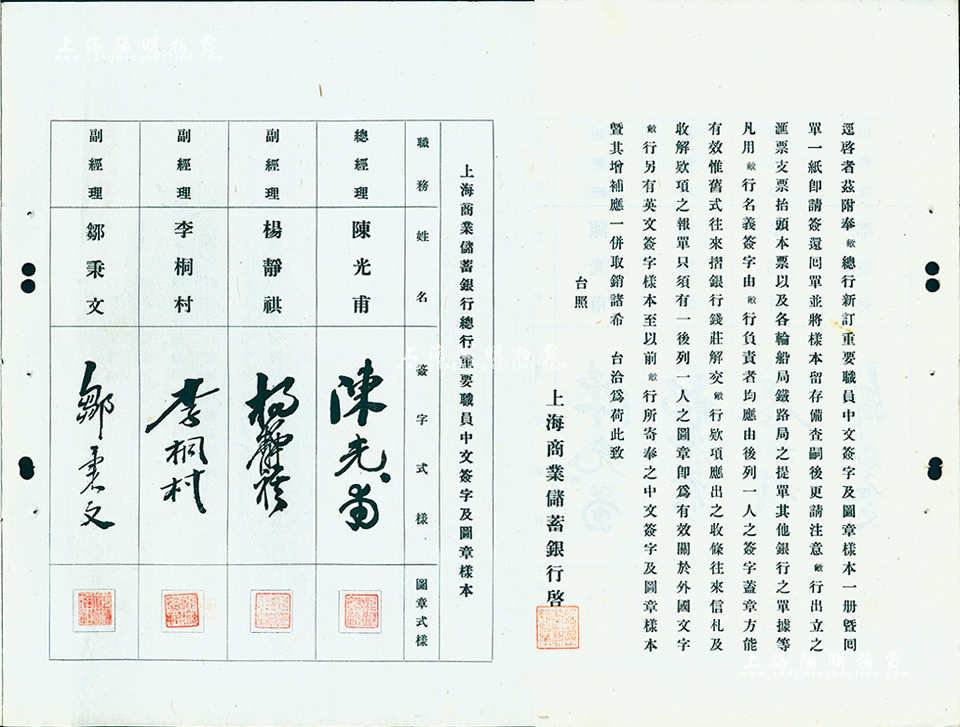 逕啓者茲附奉敝總行新訂重要職員中文簽字及圖章樣本一册暨囘
單一紙卽請簽還囘單並將樣本留存備查嗣後更請注意敝行出立之
滙票支票抬頭本票以及各輪船局鐵路局之提單其他銀行之單據等
凡用敝行名義簽字由敝行負責者均應由後列一人之簽字蓋章方能
有效惟舊式往來摺銀行錢莊解交敝行欵項應出之收條往來信札及
收解欵項之報單只須有一後列一人之圖章卽爲有效關於外國文字
敝行另有英文簽字樣本至以前敝行所寄奉之中文簽字及圖章樣本
暨其增補應一併取銷諸希 台洽爲荷此致
台照
上海商業儲蓄銀行啓
上海商業儲蓄銀行總行重要職員中文簽字及圖章樣本
職務 姓名 簽字式樣 圖章式樣
總經理 陳光甫 陳光甫
副經理 楊靜祺 楊靜祺
副經理 李桐村 李桐村
副經理 鄒秉文 鄒秉文
上海陽明拍賣
www.yangmingauction.com
上海陽明拍賣
www.yangmingauction.com
上海陽明拍賣
www.yangmingauction.com